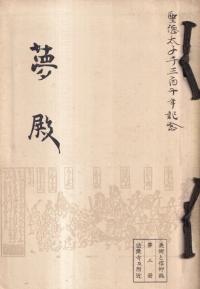 聖德太子千三百年記念
夢殿
美術と信仰
第三冊
法隆寺及附近